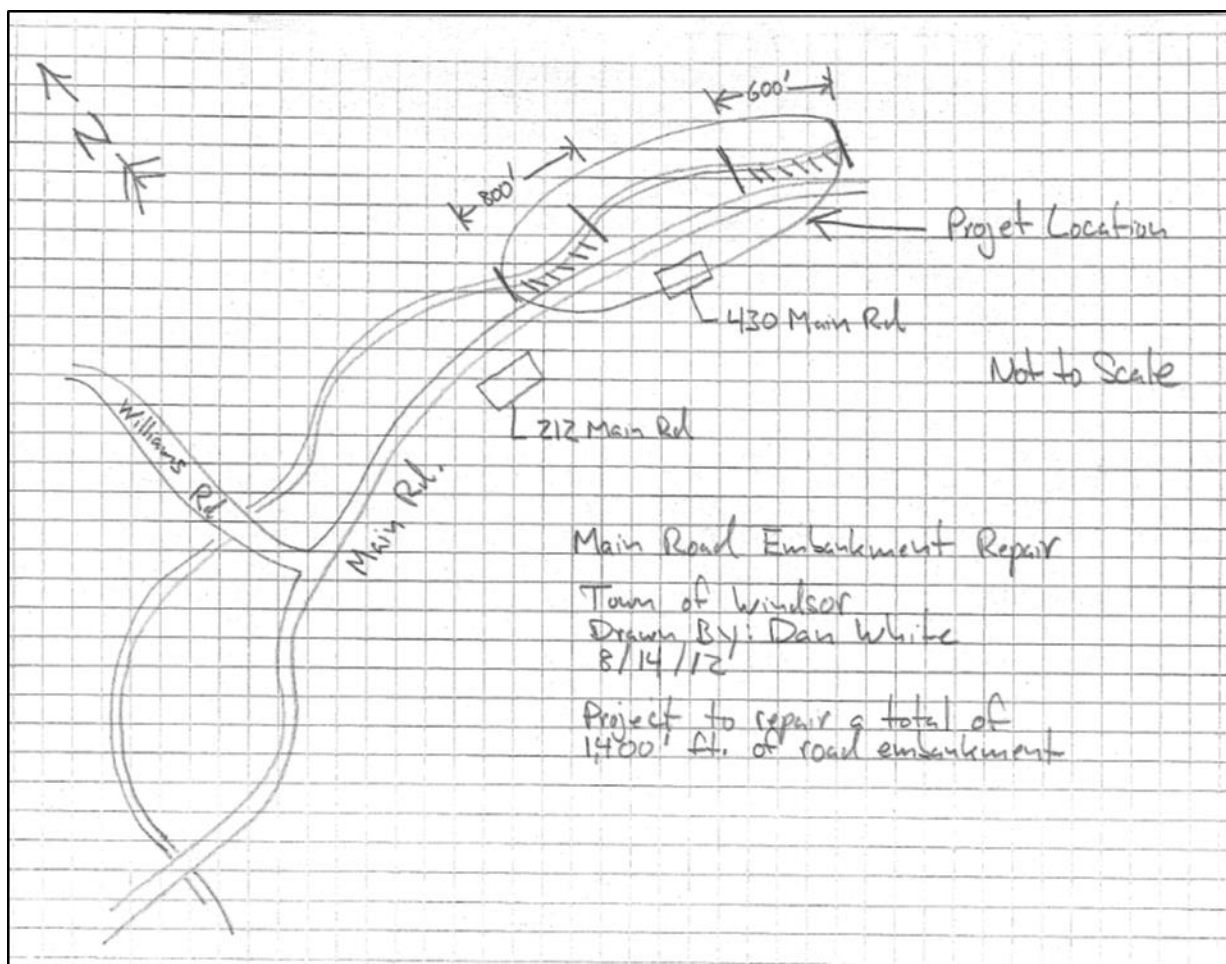 N
600'
800'
Projet Location
430 Main Rd
Not to Scale
212 Main Rd
Williams
Rd
Main Rd.
Main Road Embankment Repair
Town of Windsor
Drawn By: Dan White
8/14/12
Project to repair a total of
1,400' ft. of road embankment